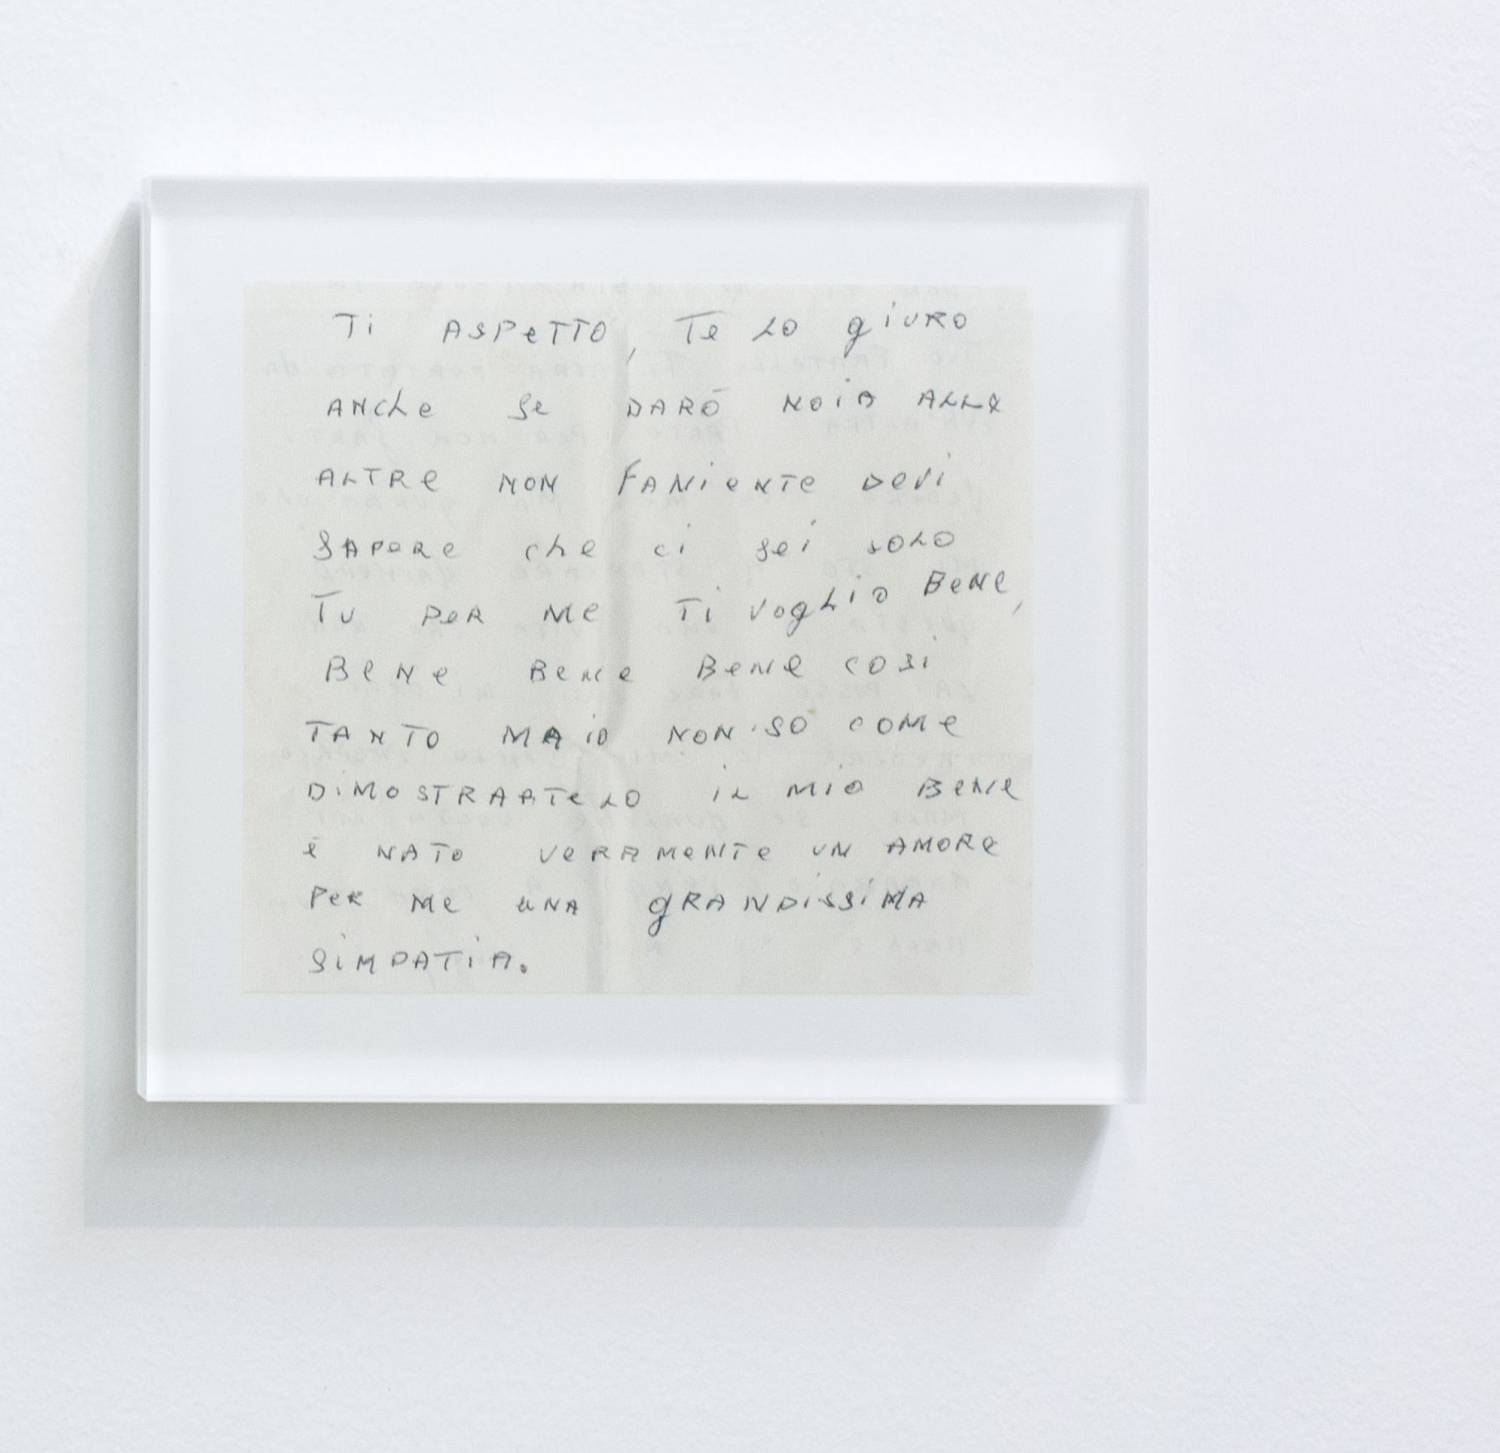 Ti ASPeTTO, Te LO giURO
ANChe Se DARÓ NOiA ALLe
ALTRe NON FANieNTe DeVi
SAPeRe che ci Sei SOLO
TU PeR Me Ti VOgLiO BeNe,
BeNe BeNe BeNe COSi
TANTO MA iO NON SO COMe
DiMOSTRARTeLO iL MiO BeNe
É NATO VeRAMeNTe UN AMORe
PeR Me UNA gRANDiSSiMA
SiMPATiA.